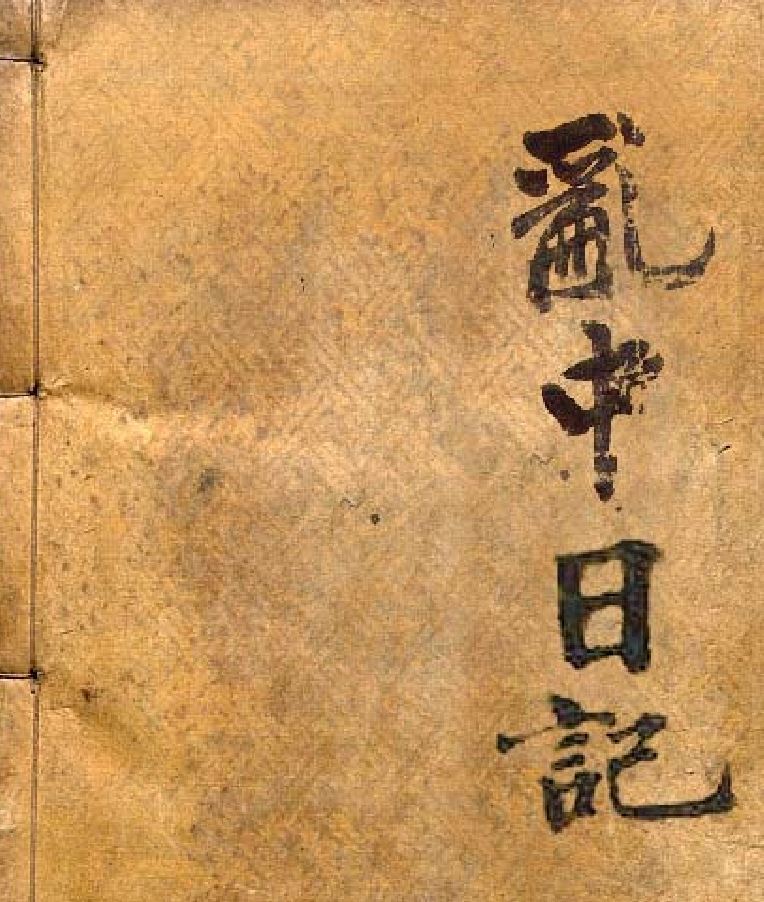 亂中日記